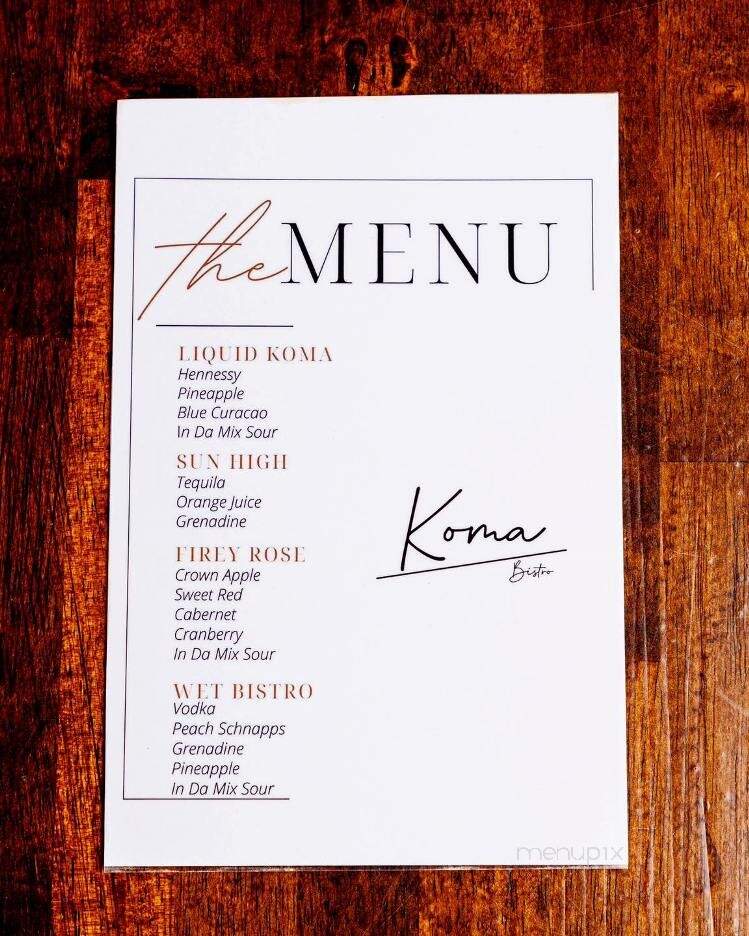 the MENU
LIQUID KOMA
Hennessy
Pineapple
Blue Curacao
In Da Mix Sour
SUN HIGH
Tequila
Orange Juice
Grenadine
FIREY ROSE
Crown Apple
Sweet Red
Cabernet
Cranberry
In Da Mix Sour
WET BISTRO
Vodka
Peach Schnapps
Grenadine
Pineapple
In Da Mix Sour
Koma
Bistro
menupix